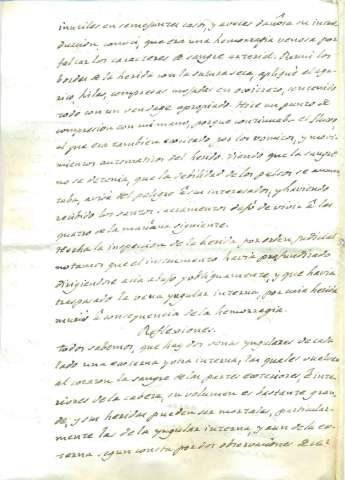 inutiles en semejantes casos, y aveces dañosa su intro
duccion, conoci, que era una hemorragia venosa por
faltar los caracteres de sangre arterial. Reuni los
bordes de la herida con la sutura seca, apliqué el aga
rico, hilas, compresas mojadas en oxicrato, conteniendo
todo con un vendage apropiado. Hice un punto de
compresion con mi mano, porque continuaba el fluxo
al que era tambien excitado, por los vomitos, y movi
mientos automaticos del herido. Viendo que la sangre
no se detenia, que la debilidad de los pulsos se aumen
taba, avisé del peligro á sus interesados, y habiendo
recibido los santos sacramentos dejó de vivir á las
quatro de la mañana siguiente.
Hecha la inspeccion de la herida por orden judicial
notamos que el instrumento havia profundizado
dirigiendose acia abajo y obliquamente, y que havia
traspasado la vena yugular interna, por cuia herida
murió á consequencia de la hemorragia.
Reflexiones.
todos sabemos, que hay dos venas yugulares de cada
lado una externa y otra interna, las quales vuelven
al corazon la sangre de las partes exteriores, é inte
riores de la cabeza, su volumen es bastante gran
de, y sus heridas pueden ser mortales, particular
mente las de la yugular interna, y aun de la ex
terna, segun consta por dos observaciones de